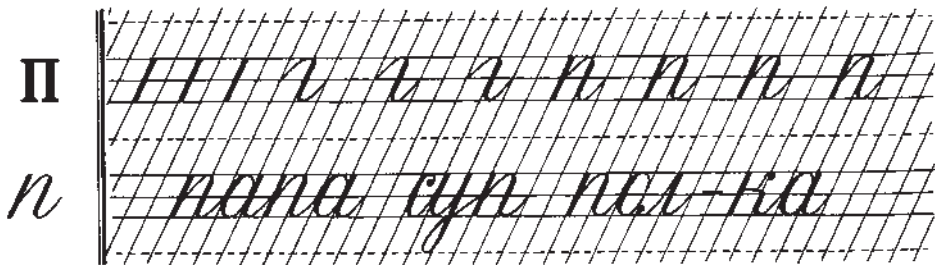 п г г г п п п п
п папа суп пал-ка